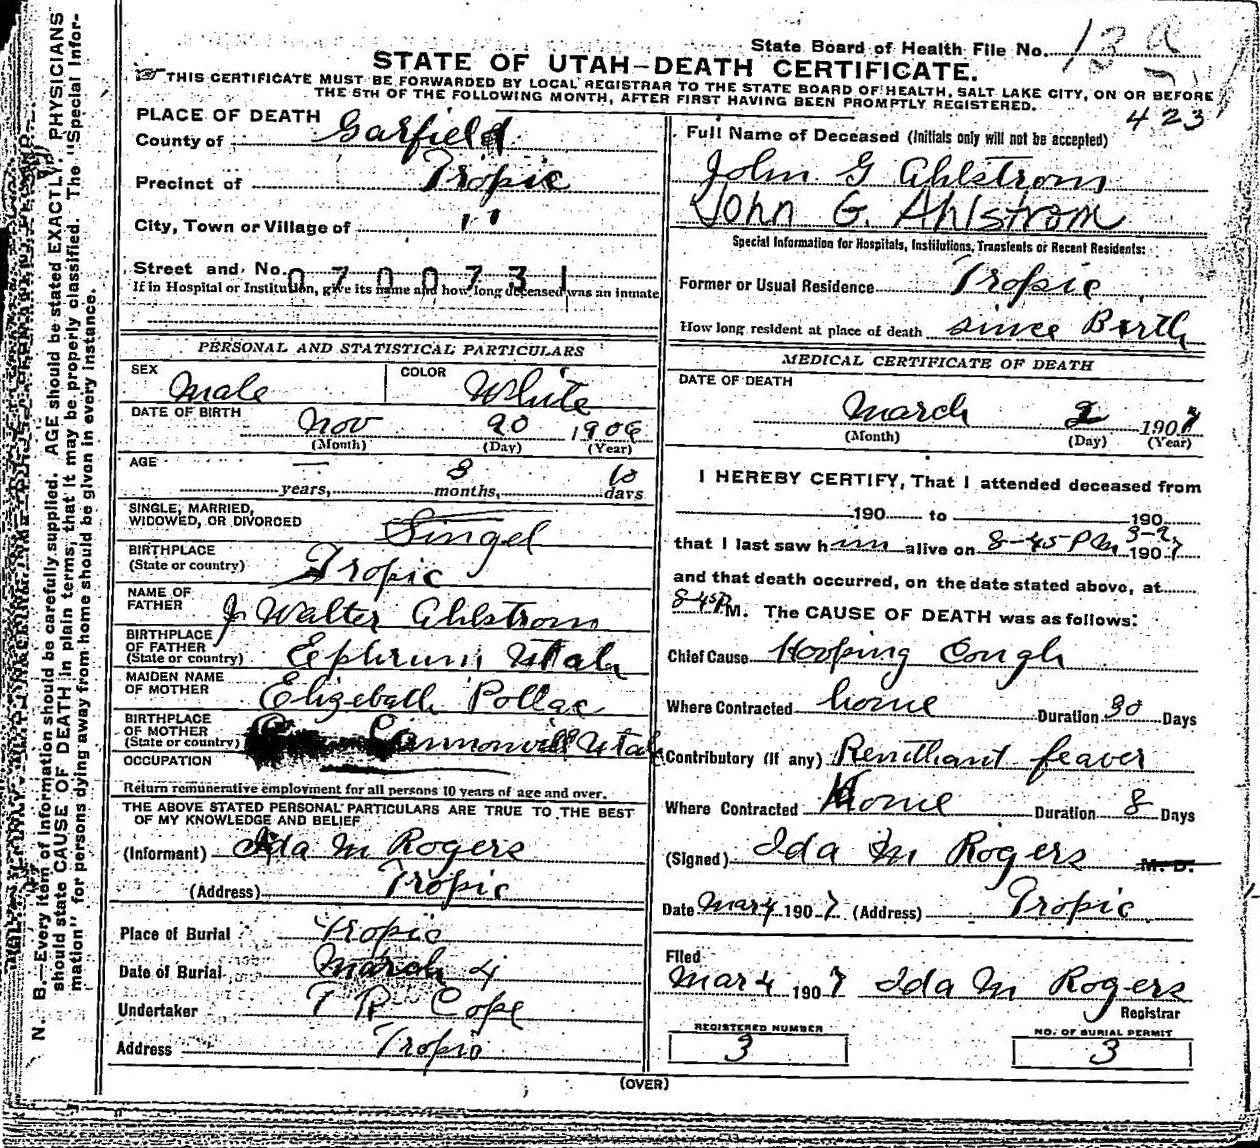 State Board of Health File No. 13 a
STATE OF UTAH–DEATH CERTIFICATE.
THIS CERTIFICATE MUST BE FORWARDED BY LOCAL REGISTRAR TO THE STATE BOARD OF HEALTH, SALT LAKE CITY, ON OR BEFORE
THE 5TH OF THE FOLLOWING MONTH, AFTER FIRST HAVING BEEN PROMPTLY REGISTERED.
423
PLACE OF DEATH
County of Garfield
Precinct of Tropic
City, Town or Village of "
Street and No.
0700731
If in Hospital or Institution, give its name and how long deceased was an inmate
PERSONAL AND STATISTICAL PARTICULARS
SEX Male COLOR White
DATE OF BIRTH Nov 20 1906
(Month) (Day) (Year)
AGE — years, 3 months, 10 days
SINGLE, MARRIED,
WIDOWED, OR DIVORCED Singel
BIRTHPLACE
(State or country) Tropic
NAME OF
FATHER J Walter Ahlstrom
BIRTHPLACE
OF FATHER
(State or country) Ephrim Utah
MAIDEN NAME
OF MOTHER Elizebath Pollac
BIRTHPLACE
OF MOTHER
(State or country) Cannonvill Utah
OCCUPATION
Return remunerative employment for all persons 10 years of age and over.
THE ABOVE STATED PERSONAL PARTICULARS ARE TRUE TO THE BEST
OF MY KNOWLEDGE AND BELIEF
(Informant) Ida M Rogers
(Address) Tropic
Place of Burial Tropic
Date of Burial March 4
Undertaker T R Cope
Address Tropic
Full Name of Deceased (Initials only will not be accepted)
John G Ahlstrom
John G. Ahlstrom
Special Information for Hospitals, Institutions, Transients or Recent Residents:
Former or Usual Residence Tropic
How long resident at place of death since Birth
MEDICAL CERTIFICATE OF DEATH
DATE OF DEATH
March 2 1907
(Month) (Day) (Year)
I HEREBY CERTIFY, That I attended deceased from
190 to 190
that I last saw him alive on 8-45 PM 3-2, 1907
and that death occurred, on the date stated above, at
8-45P M. The CAUSE OF DEATH was as follows:
Chief Cause Hooping Cough
Where Contracted home Duration 30 Days
Contributory (If any) Remithant feaver
Where Contracted Home Duration 8 Days
(Signed) Ida M Rogers M. D.
Date Mar 4 1907 (Address) Tropic
Filed
Mar 4 1907 Ida M Rogers
Registrar
REGISTERED NUMBER
3
NO. OF BURIAL PERMIT
3
(OVER)
N. B.—Every item of information should be carefully supplied. AGE should be stated EXACTLY. PHYSICIANS
should state CAUSE OF DEATH in plain terms, that it may be properly classified. The "Special Infor-
mation" for persons dying away from home should be given in every instance.